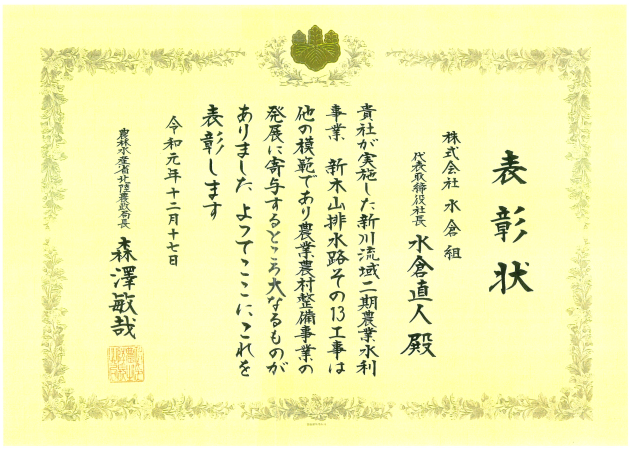 表彰状
株式会社 水倉組
代表取締役社長 水倉直人 殿
貴社が実施した新川流域二期農業水利
事業 新木山排水路その13工事は
他の模範であり農業農村整備事業の
発展に寄与するところ大なるものが
ありました よってここにこれを
表彰します
令和元年十二月十七日
農林水産省北陸農政局長 森澤敏哉